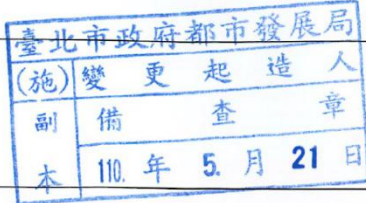 臺北市政府都市發展局
(施) 變更起造人
副本 備查章
110. 年 5. 月 21 日